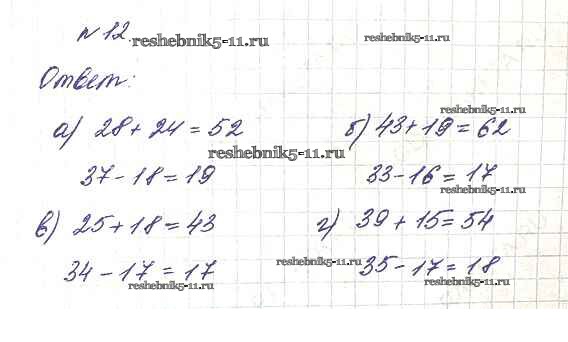 № 12.
reshebnik5-11.ru reshebnik5-11.ru
Ответ:
reshebnik5-11.ru
а) 28 + 24 = 52 б) 43 + 19 = 62
reshebnik5-11.ru
37 - 18 = 19 33 - 16 = 17
reshebnik5-11.ru
в) 25 + 18 = 43 г) 39 + 15 = 54
reshebnik5-11.ru
34 - 17 = 17 35 - 17 = 18
reshebnik5-11.ru reshebnik5-11.ru